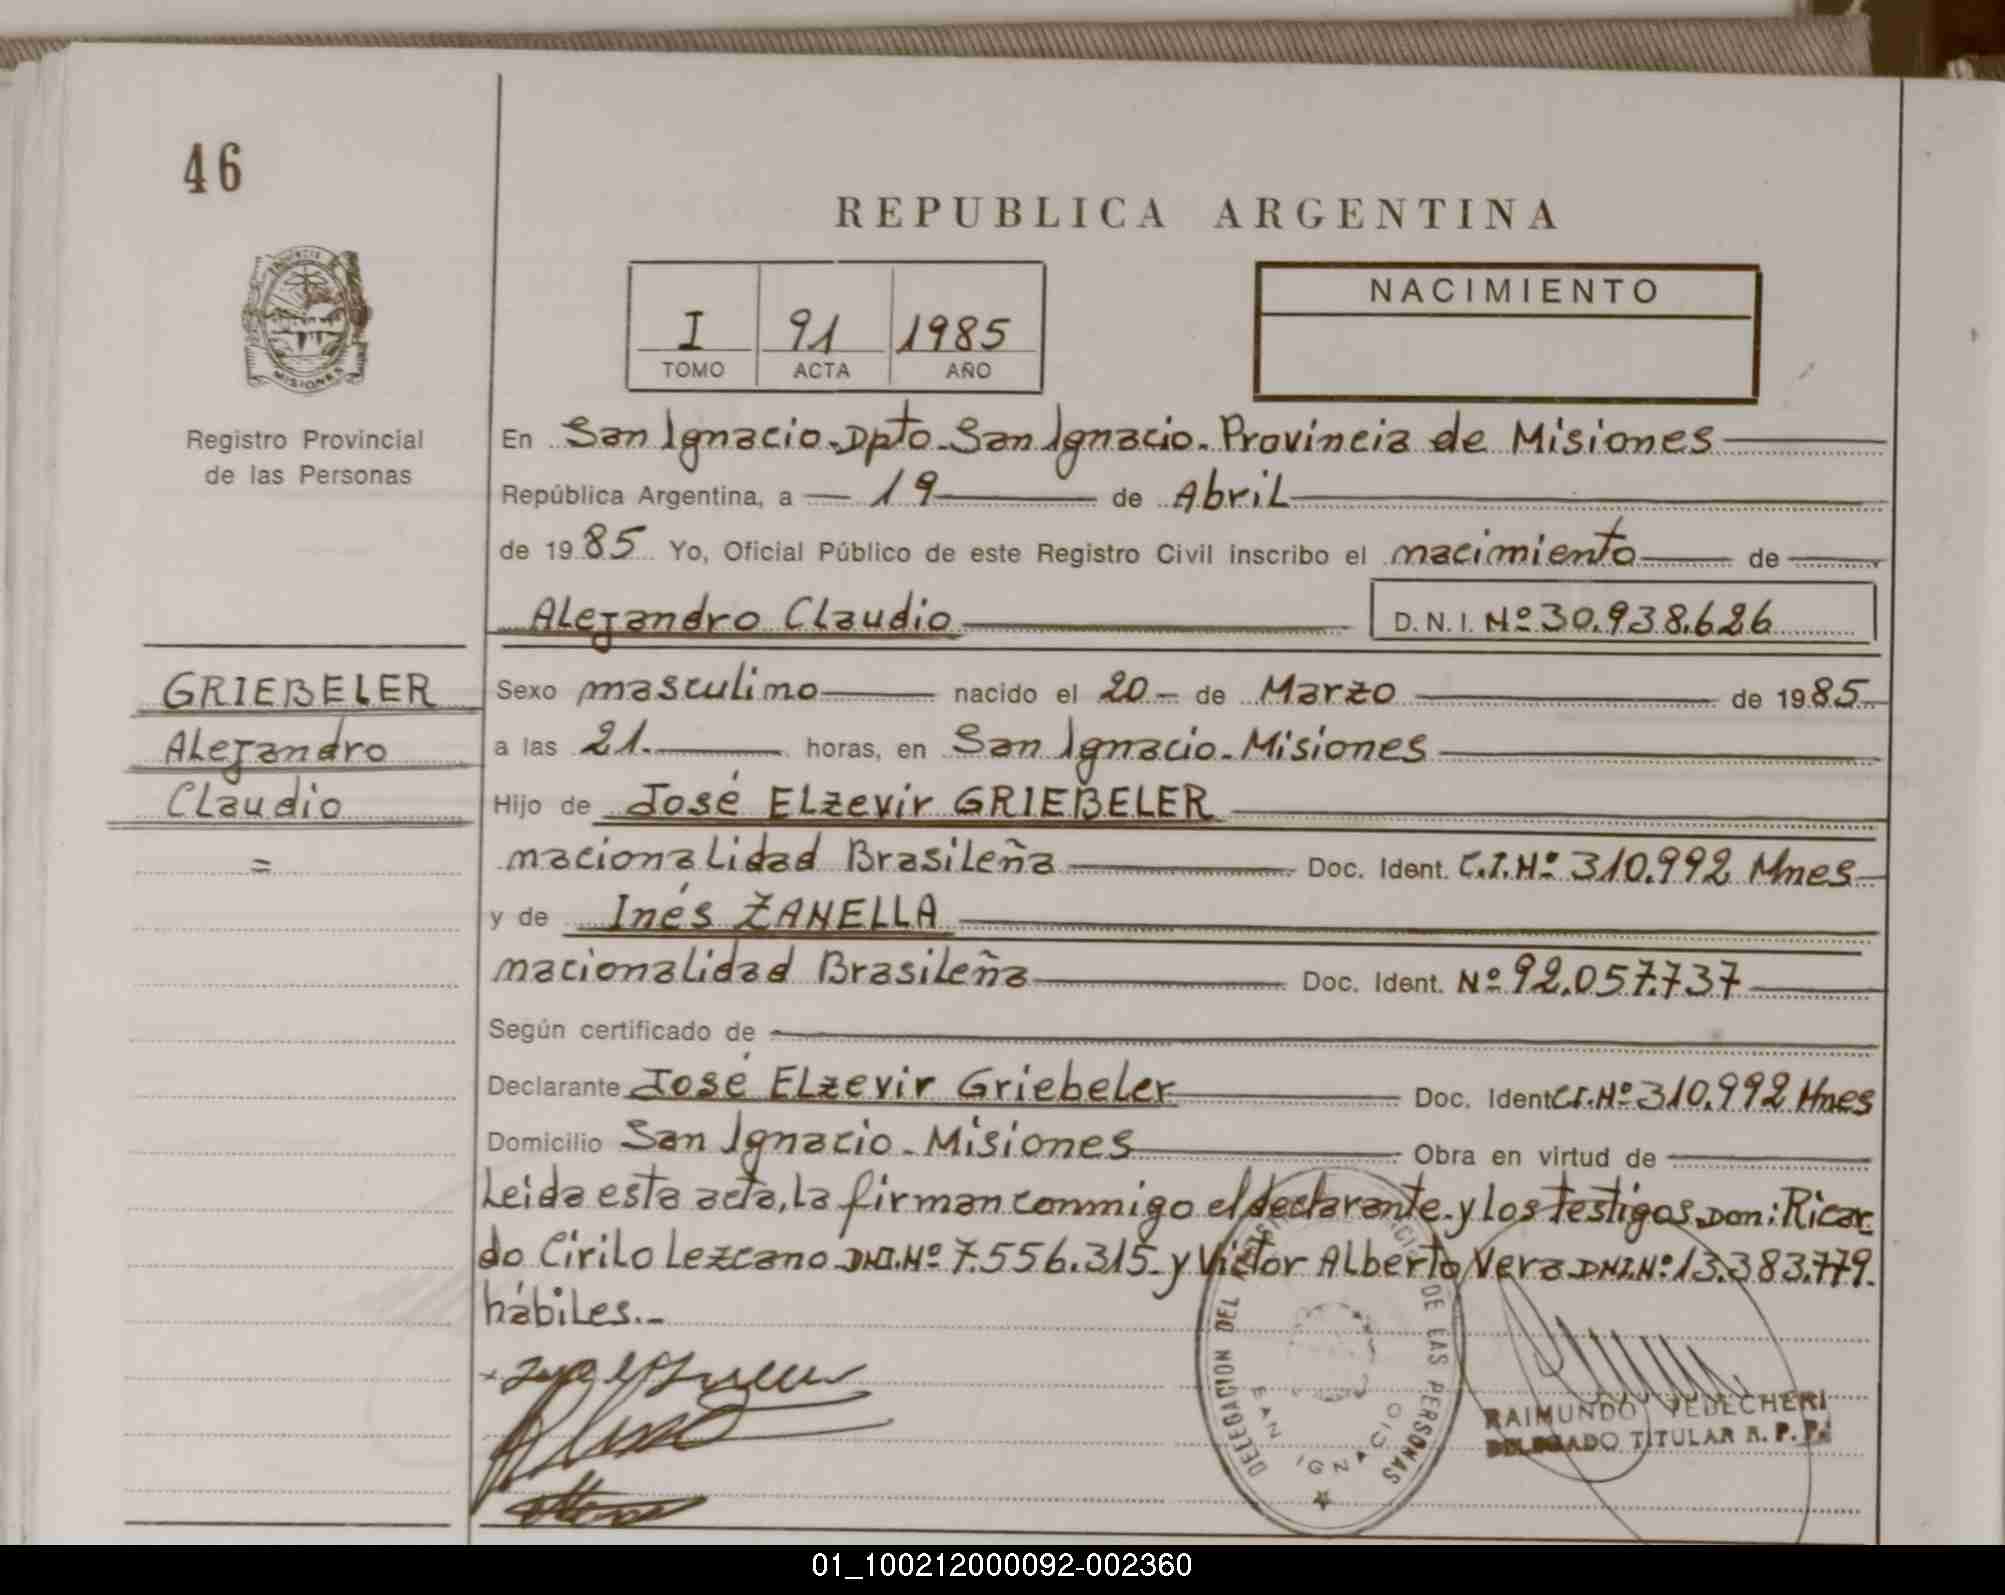 46
REPUBLICA ARGENTINA
NACIMIENTO
I 91 1985
TOMO ACTA AÑO
PROVINCIA DE
MISIONES
Registro Provincial
de las Personas
En San Ignacio-Dpto-San Ignacio-Provincia de Misiones
República Argentina, a 19 de Abril
de 1985 Yo, Oficial Público de este Registro Civil inscribo el nacimiento de
Alejandro Claudio D.N.I. Nº30.938.626
GRIEBELER
Alejandro
Claudio
=
Sexo masculino nacido el 20 de Marzo de 1985
a las 21. horas, en San Ignacio-Misiones
Hijo de José Elzevir GRIEBELER
nacionalidad Brasileña Doc. Ident. C.I.Nº 310.992 Mnes
y de Inés ZANELLA
nacionalidad Brasileña Doc. Ident. Nº 92.057.737
Según certificado de
Declarante José Elzevir Griebeler Doc. Ident C.I.Nº 310.992 Mnes
Domicilio San Ignacio-Misiones Obra en virtud de
Leida esta acta, la firman conmigo el declarante y los testigos Don: Ricar
do Cirilo Lezcano DNI.Nº 7.556.315- y Víctor Alberto Vera DNI.Nº 13.383.779.
hábiles.-
DELEGACION DEL DE LAS PERSONAS
SAN IGNACIO
RAIMUNDO
DELEGADO TITULAR R. P. P.
01_100212000092-002360